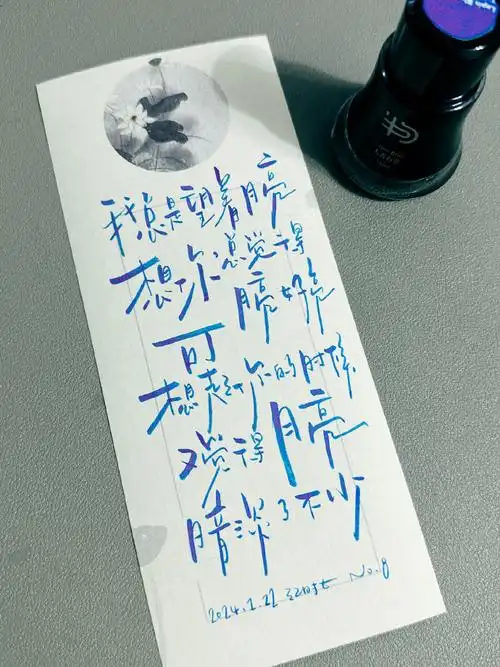 我总是望着月亮
想你总觉得
月亮好亮
可
想起你的时候
又觉得月亮
暗淡了不少
2024.1.22 No.8